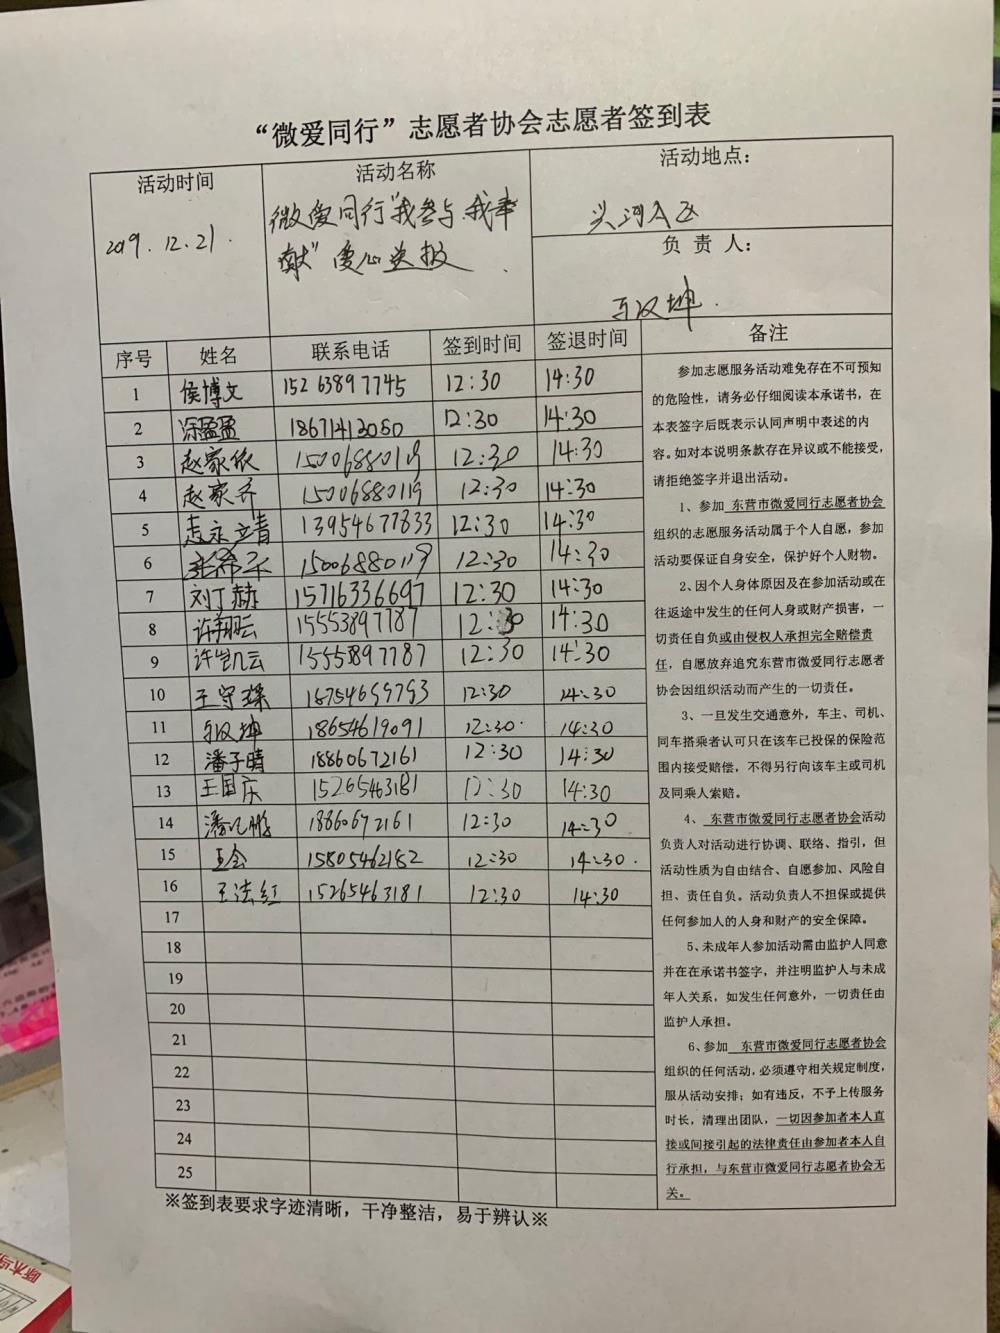 “微爱同行”志愿者协会志愿者签到表
活动时间
活动名称
活动地点：
2019.12.21.
微爱同行“我参与.我奉
献”爱心送报
负 责 人：
序号 姓名 联系电话 签到时间 签退时间 备注
1 侯博文 15263897745 12:30 14:30
2 涂孟孟 18671413080 12:30 14:30
3 赵家依 15006880119 12:30 14:30
4 赵家齐 15006880119 12:30 14:30
5 13954677833 12:30 14:30
6 15006880119 12:30 14:30
7 刘丁赫 15716336697 12:30 14:30
8 许翔云 15553897787 12:30 14:30
9 许凯云 15553897787 12:30 14:30
10 王守琛 18754699793 12:30 14:30
11 18654619091 12:30 14:30
12 潘子晴 18860672161 12:30 14:30
13 王国庆 15265463181 12:30 14:30
14 18860672161 12:30 14:30
15 15805462182 12:30 14:30.
16 王法红 15265463181 12:30 14:30
17
18
19
20
21
22
23
24
25
参加志愿服务活动难免存在不可预知
的危险性，请务必仔细阅读本承诺书，在
本表签字后既表示认同声明中表述的内
容。如对本说明条款存在异议或不能接受，
请拒绝签字并退出活动。
1、参加 东营市微爱同行志愿者协会
组织的志愿服务活动属于个人自愿，参加
活动要保证自身安全，保护好个人财物。
2、因个人身体原因及在参加活动或在
往返途中发生的任何人身或财产损害，一
切责任自负或由侵权人承担完全赔偿责
任，自愿放弃追究东营市微爱同行志愿者
协会因组织活动而产生的一切责任。
3、一旦发生交通意外，车主、司机、
同车搭乘者认可只在该车已投保的保险范
围内接受赔偿，不得另行向该车主或司机
及同乘人索赔。
4、 东营市微爱同行志愿者协会活动
负责人对活动进行协调、联络、指引，但
活动性质为自由结合、自愿参加、风险自
担、责任自负。活动负责人不担保或提供
任何参加人的人身和财产的安全保障。
5、未成年人参加活动需由监护人同意
并在在承诺书签字，并注明监护人与未成
年人关系，如发生任何意外，一切责任由
监护人承担。
6、参加 东营市微爱同行志愿者协会
组织的任何活动，必须遵守相关规定制度，
服从活动安排；如有违反，不予上传服务
时长，清理出团队，一切因参加者本人直
接或间接引起的法律责任由参加者本人自
行承担，与东营市微爱同行志愿者协会无
关。
※签到表要求字迹清晰，干净整洁，易于辨认※